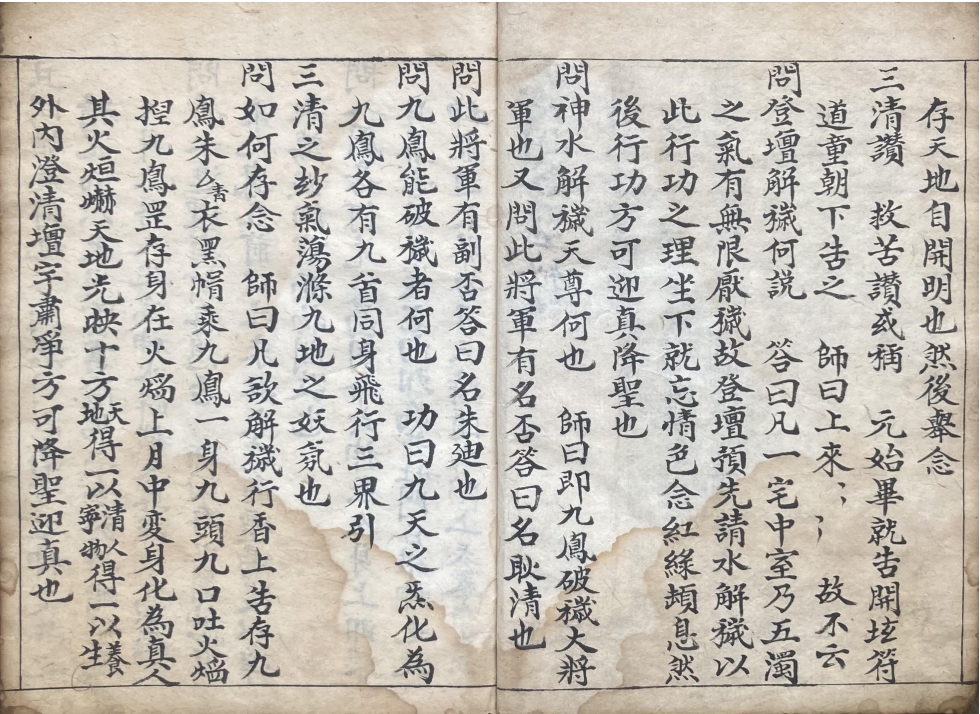 存天地自開明也然後舉念
三清讚　救苦讚或稱　元始畢就告開坛符
道童朝下告之　師曰上來〻〻　故不云
問登壇解穢何説　答曰凡一宅中室乃五濁
之氣有無限厭穢故登壇預先請水解穢以
此行功之理坐下就忘情色念紅緣頓息然
後行功方可迎真降聖也
問神水解穢天尊何也　師曰即九鳳破穢大將
軍也又問此將軍有名否答曰名耿清也
問此將軍有副否答曰名朱廸也
問九鳳能破穢者何也　功曰九天之炁化為
九鳳各有九首同身飛行三界引
三清之玅氣蕩滌九地之妖氛也
問如何存念　師曰凡欲解穢行香上告存九
鳳朱衣黑幘乘九鳳一身九頭九口吐火焰
揑九鳳罡存身在火焰上月中变身化為真人
其火烜爀天地光映十方天地得一以清寧人物得一以養生
外内澄清壇宇肅凈方可降聖迎真也